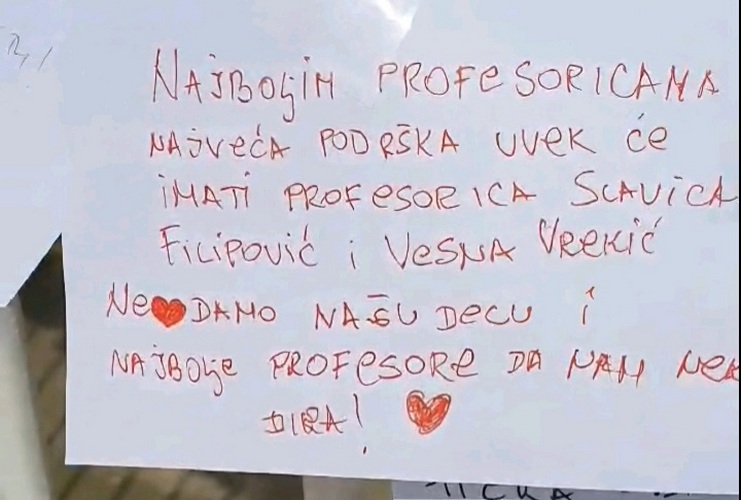 NAJBOLJIM PROFESORICAMA
NAJVEĆA PODRŠKA UVEK ĆE
IMATI PROFESORICA SLAVICA
FILIPOVIĆ i VESNA VREKIĆ
Ne ❤ DAMO NAŠU DECU i
NAJBOLJE PROFESORE DA NAM NEK
DIRA! ❤